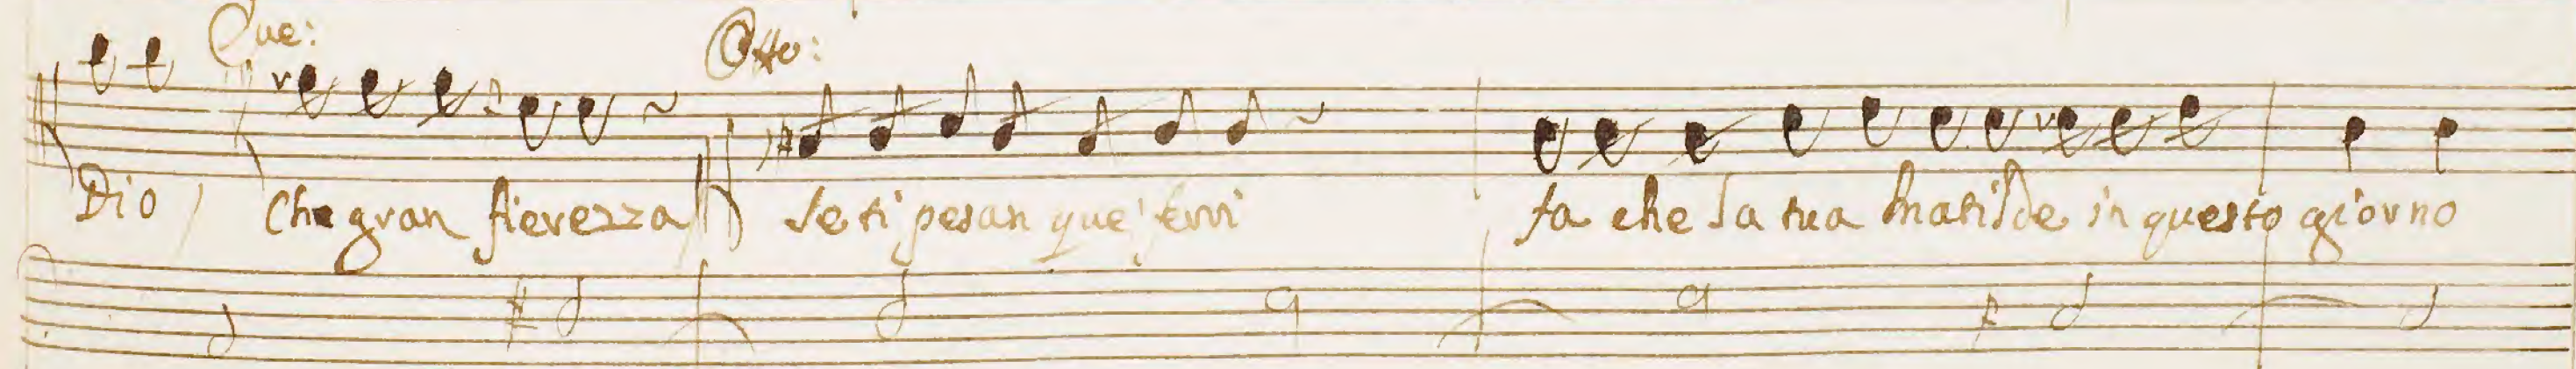 Gue: Otto:
Dio, Che gran fierezza Se ti pesan que' ferri fa che la tua Matilde in questo giorno